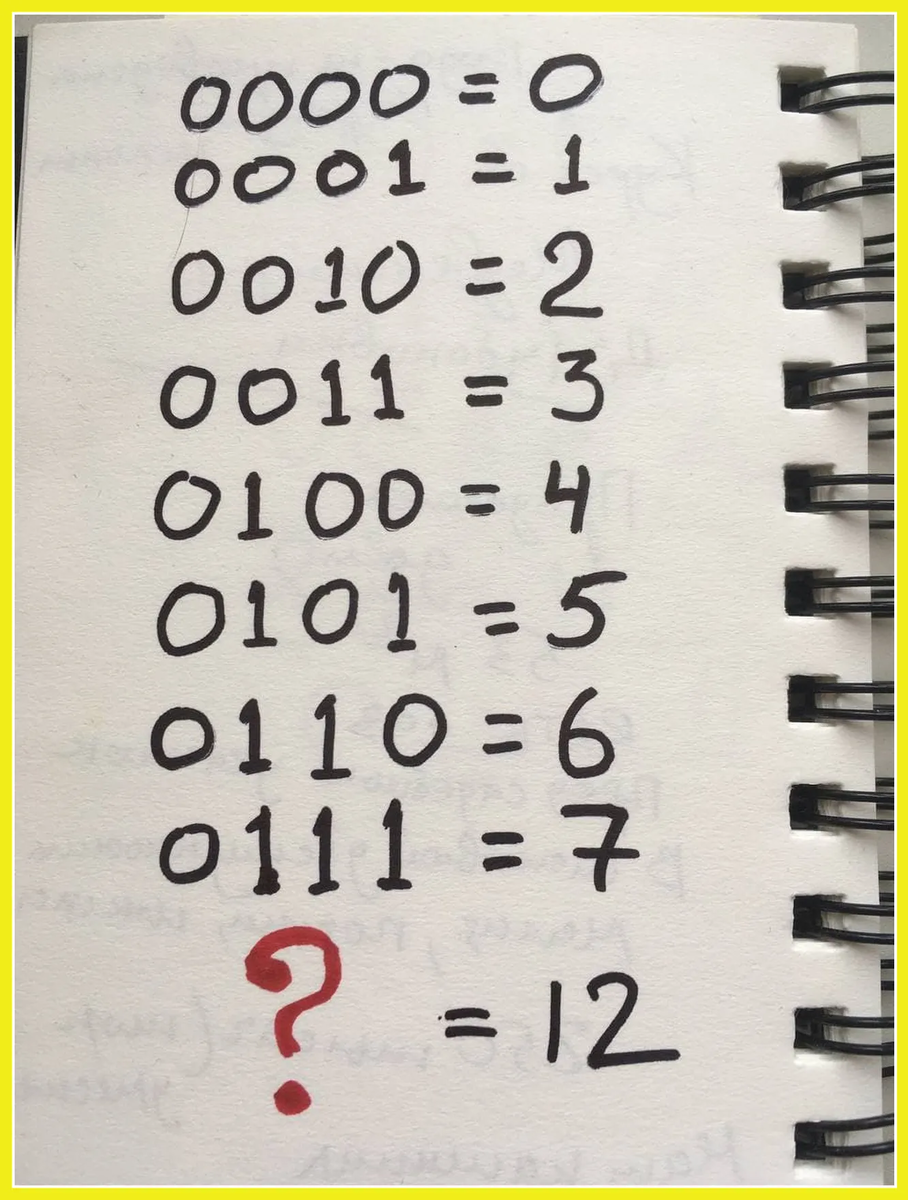 0000 = 0
0001 = 1
0010 = 2
0011 = 3
0100 = 4
0101 = 5
0110 = 6
0111 = 7
? = 12